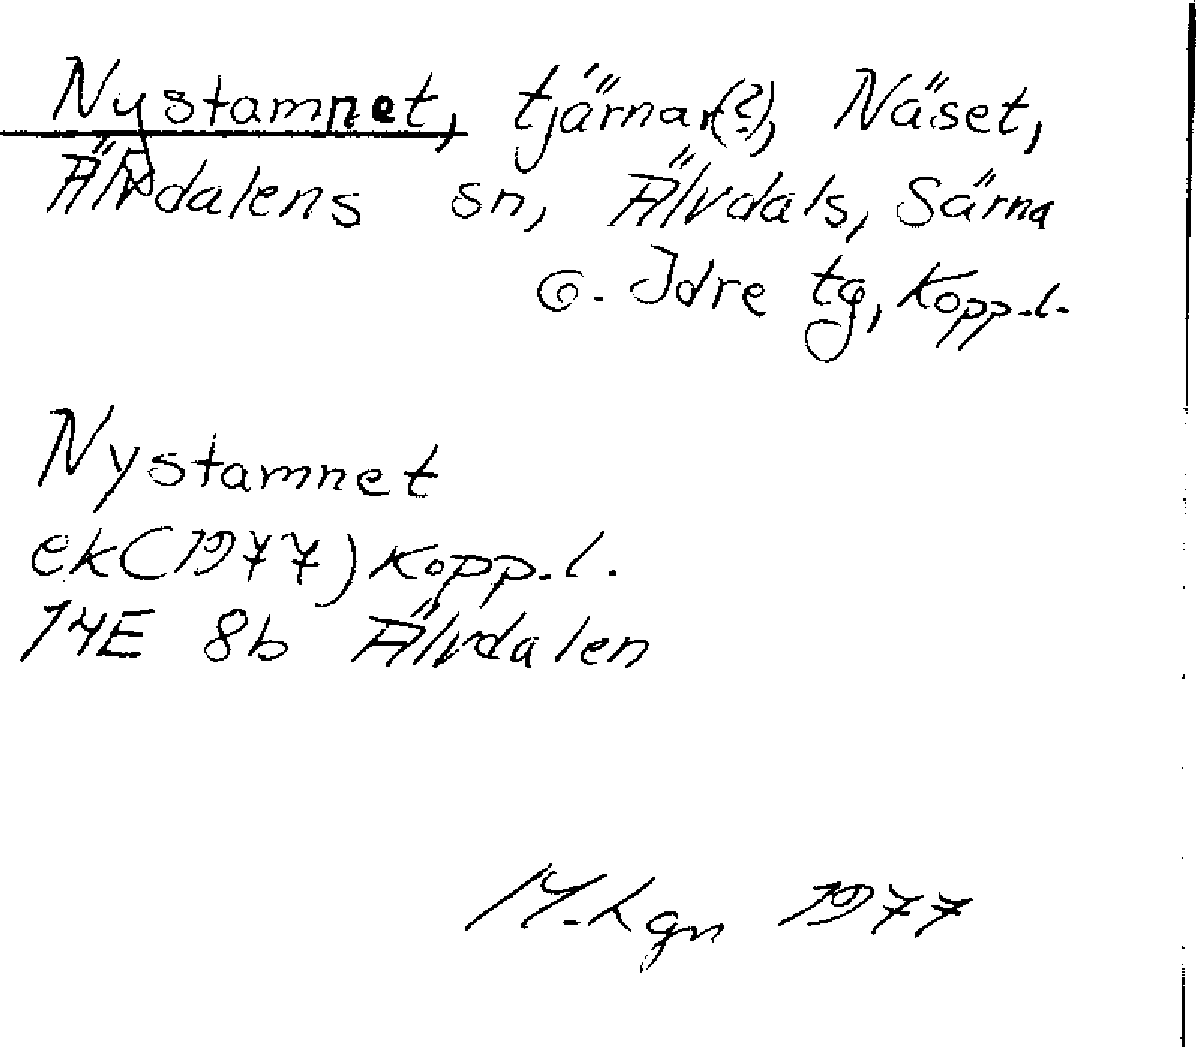 Nystamnet, tjärnar(?), Näset,
Älvdalens sn, Älvdals, Särna
o. Idre tg, Kopp.l.
Nystamnet
ek(1977) Kopp.l.
14E 8b Älvdalen
M.Lgn 1977